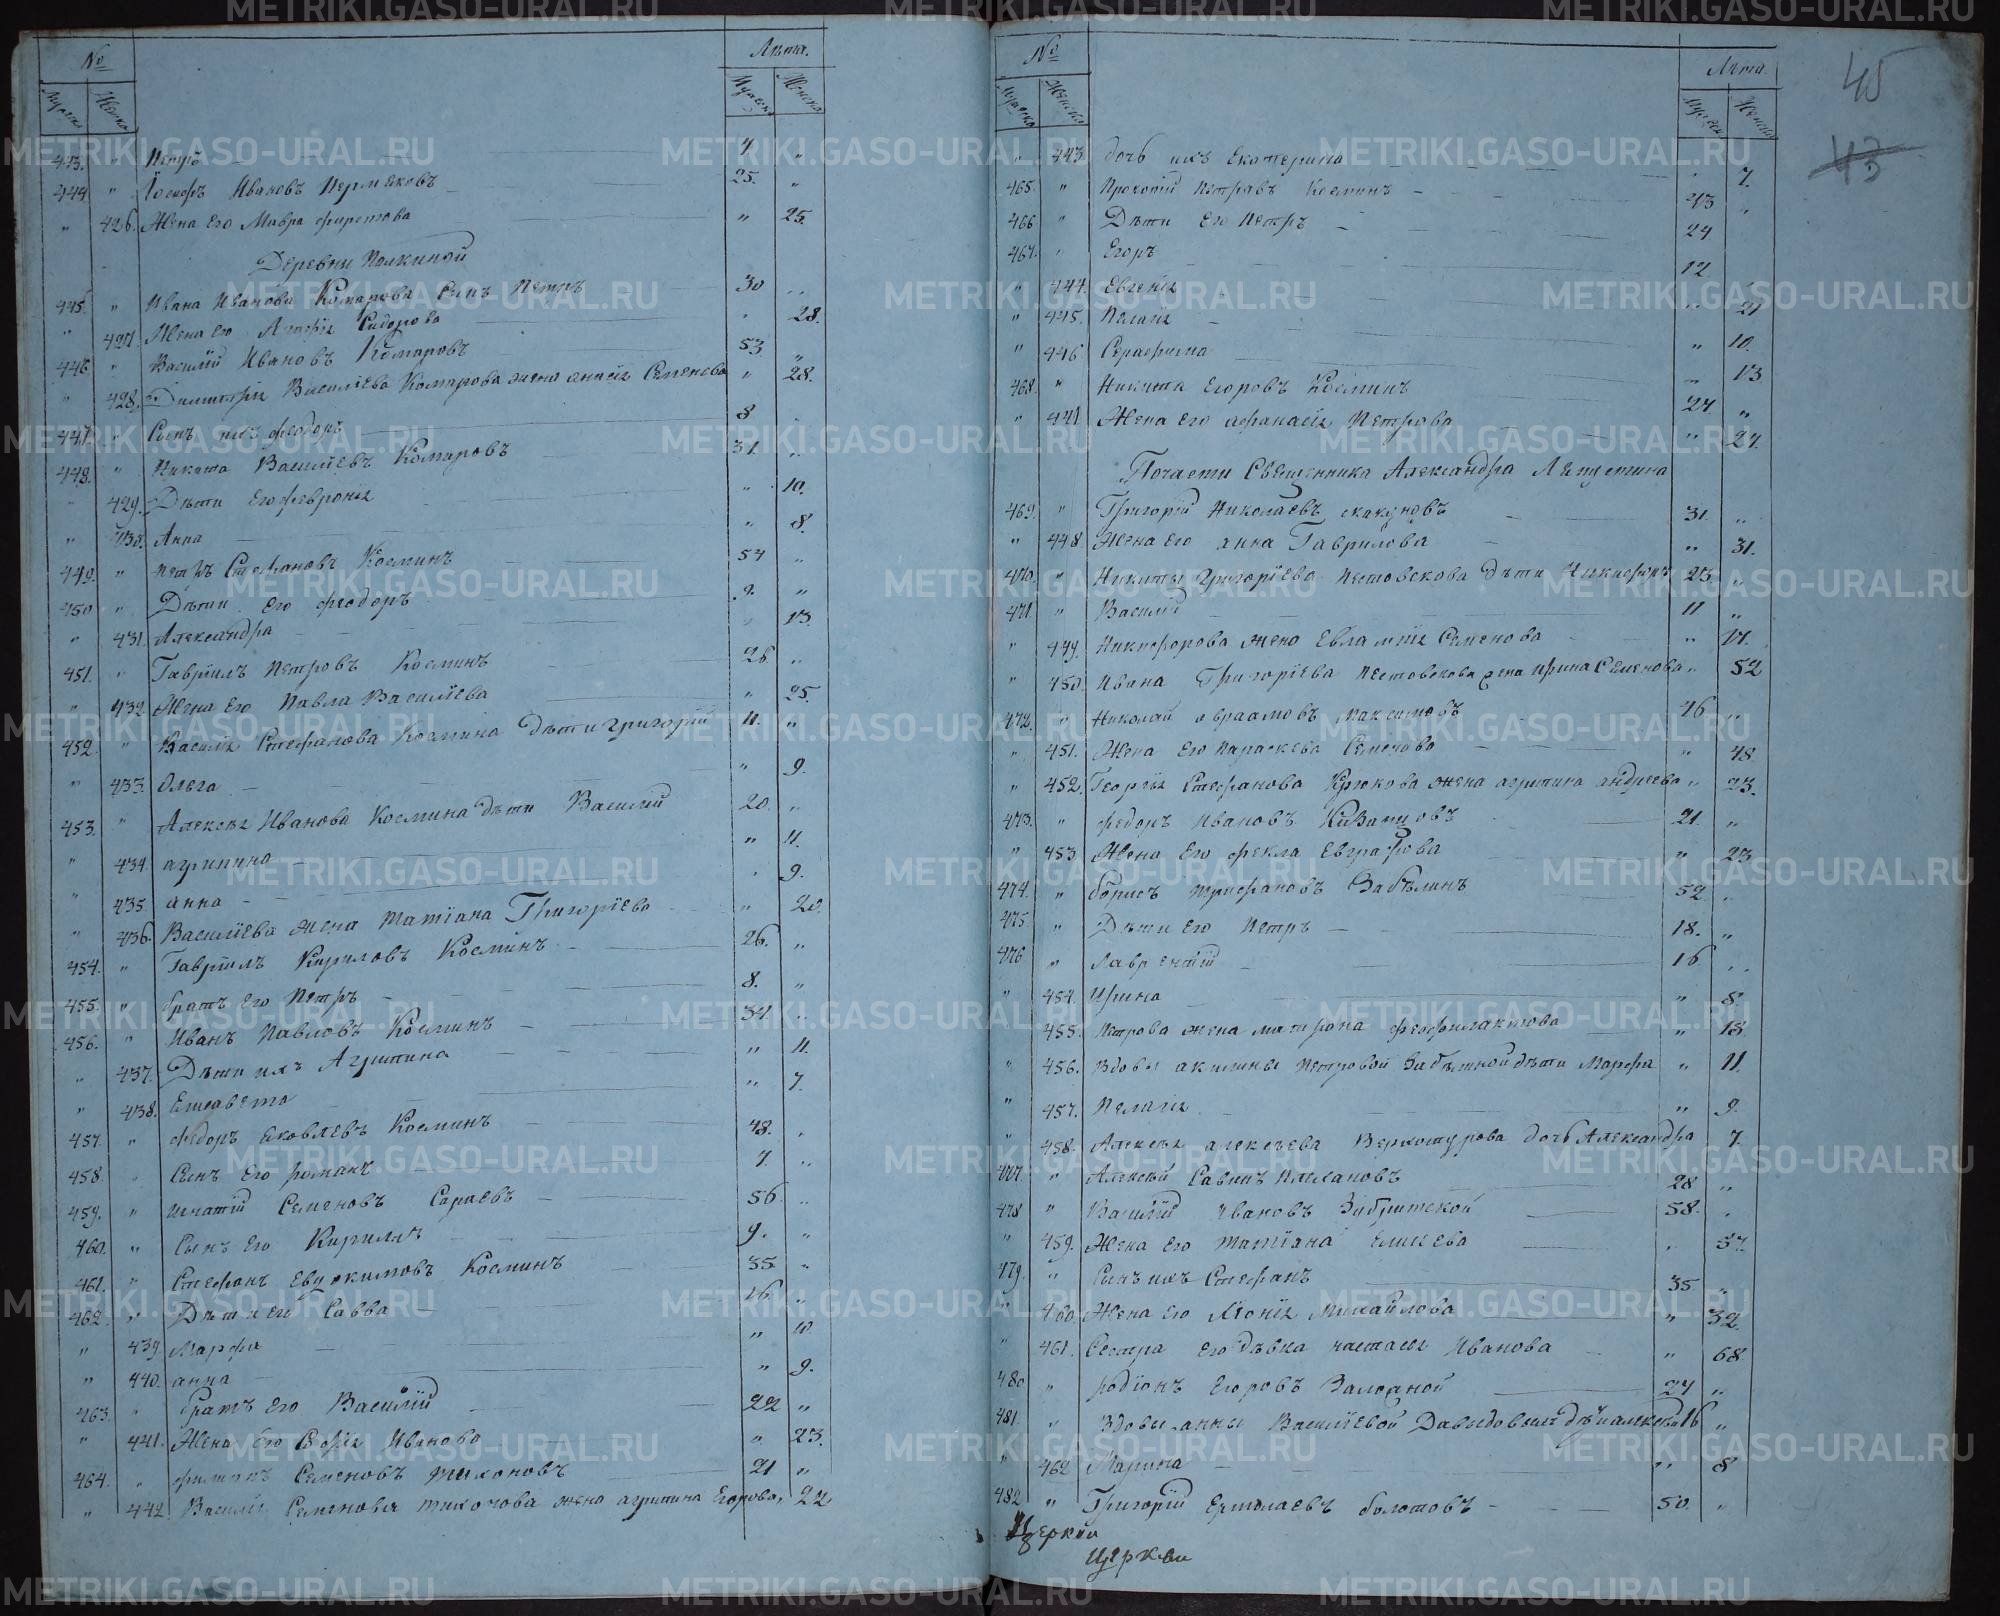 № Лѣта.
Мужеска Женска Мужеска Женска
443. " Петръ 7 "
444 " Іосифъ Ивановъ Пермяковъ 25. "
" 426. Жена его Мавра Фирстова " 25.
Деревни Палкиной
445 " Ивана Иванова Комарова сынъ Петръ 30 "
" 427. Жена его Агафія Сидорова " 28.
446 " Василій Ивановъ Комаровъ 53 "
" 428. Димитрія Василіева Комарова жена Анисія Семенова " 28.
447. " Сынъ ихъ Феодоръ 8 "
448. " Никита Василіевъ Комаровъ 31. "
" 429. Дѣти его Февронія " 10.
" 430. Анна " 8.
449. " Петръ Стефановъ Косминъ 54 "
450 " Дѣти его Феодоръ 9. "
" 431. Александра " 13.
451. " Гавріилъ Петровъ Косминъ 26 "
" 432 Жена его Павла Василіева " 25.
452. " Василія Стефанова Космина дѣти Григорій 11. "
" 433 Ольга " 9.
453. " Алексѣя Иванова Космина дѣти Василій 20. "
" 434. Агрипина " 11.
" 435. Анна " 9.
" 436. Василіева жена Татіана Григоріева " 20.
454. " Гавріилъ Кириловъ Косминъ 26. "
455. " Братъ его Петръ 8. "
456. " Иванъ Павловъ Косминъ 34 "
" 437. Дѣти ихъ Агрипина " 11.
" 438. Елисавета " 7.
457. " Федоръ Яковлевъ Косминъ 48. "
458 " Сынъ его Романъ 7. "
459. " Игнатій Семеновъ Сараевъ 56 "
460. " Сынъ его Кириллъ 9. "
461. " Стефанъ Евдокимовъ Косминъ 35 "
462. " Дѣти его Савва 16 "
" 439 Марфа " 10.
" 440. Анна " 9.
463. " Братъ его Василій 22 "
" 441. Жена его Марія Иванова " 23.
464. " Филипъ Семеновъ Тихоновъ 21 "
" 442. Василія Семенова Тихонова жена Агрипина Егорова " 22.
№ Лѣта. 45
Мужеска Женска Мужеска Женска 43
" 443. Дочь ихъ Екатерина " 7.
465. " Прокопій Петровъ Косминъ 43 "
466 " Дѣти его Петръ 24 "
467. " Егоръ 12
" 444. Евгенія " 21
" 445. Пелагія " 10.
" 446. Серафима " 13
468. " Никита Егоровъ Косминъ 27. "
" 447 Жена его Афанасія Петрова " 27.
По части Священника Александра Лепустина
469. " Григорій Николаевъ Скакуновъ 31. "
" 448 Жена его Анна Гаврилова " 31.
470. " Никиты Григоріева Пестовскова дѣти Никифоръ 23 "
471. " Василій 11 "
" 449. Никифорова жена Евлампія Семенова " 17.
" 450. Ивана Григоріева Пестовскова жена Ирина Семенова " 52
472. " Николай Авраамовъ Максимовъ 46 "
" 451. Жена его Параскева Семенова " 48
" 452. Георгія Стефанова Крюкова жена Агрипина Андреева " 23.
473. " Федоръ Ивановъ 21. "
" 453 Жена его Фекла Евграфова " 23
474. " Борисъ Трифановъ Забѣлинъ 52 "
475 " Дѣти его Петръ 18. "
476 " Лаврентій 16 "
" 454. Ирина " 8.
" 455. Петрова жена Матрона Феофилактова " 18.
" 456. Вдовы Акилины Петровой Забѣлиной дѣти Марфа " 11.
" 457. Пелагія " 9.
" 458. Алексѣя Алексѣева Верхотурова дочь Александра 7.
477. " Алексѣй Савинъ 28 "
478 " Василій Ивановъ 58. "
" 459. Жена его Татіана Елисеева " 57.
479. " Сынъ ихъ Стефанъ 35 "
" 460. Жена его Михайлова " 32
" 461. Сестра его дѣвка Настасія Иванова " 68
480 " Родіонъ Егоровъ 24 "
481. " Вдовы Анны Василіевой 16 "
" 462 Марина " 8
482 " Григорій Ермолаевъ Болотовъ 50. "
Церкви
Церкви
METRIKI.GASO-URAL.RU